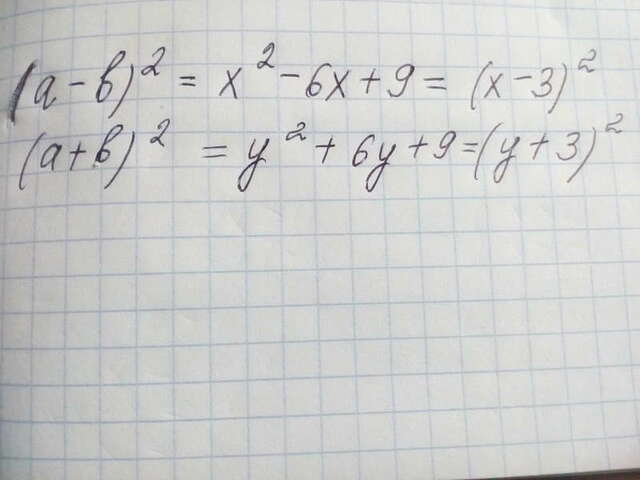 (a-b)² = x² - 6x + 9 = (x-3)²
(a+b)² = y² + 6y + 9 = (y+3)²